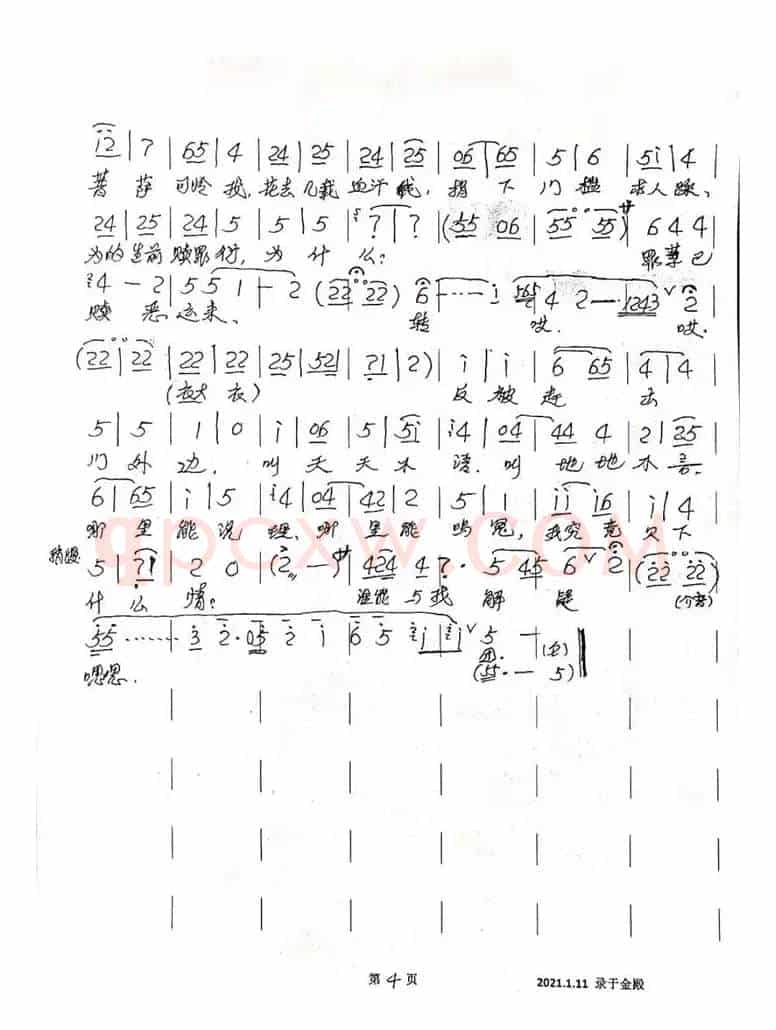 i2 | 7 | 65 | 4 | 24 | 25 | 24 | 25 | 06 | 65 | 5 | 6 | 5i | 4
菩 萨 可怜我, 花去几载血汗钱, 捐下门槛 求人踩、
24 | 25 | 24 | 5 | 5 | 5 | ? | ? | (55 06 | 55 55) 6 4 4
为的生前赎罪行, 为什么? 罪孽已
4 - 2 | 5 5 1 + 2 (22 22) 6 ---- i 565 4 2 -- 1243 ∨ 2
赎 恶运来、 转 哎. 哎.
(22 | 22 | 22 | 22 | 25 | 521 | 71 | 2) | i | i | 6 65 | 4 | 4
反被赶 去
5 | 5 | 1 | 0 | i | 06 | 5 | 5i | 4 | 04 | 44 4 | 2 | 25
门外边. 叫天天不 叫地地不
6 | 65 | i | 5 | 4 | 04 | 42 | 2 | 5 | 1 | ii i6 | i | 4
哪里能说理、哪里能鸣冤, 我究竟欠下
稍慢 5 | 71 | 2 0 (2 -) 424 4 7 · 5 45 6 ∨ 2 (22 22)
什么情? 谁能与我解疑 (介奏)
55 ······· 3 2 · 05 2 i 6 5 i i ∨ 5 -
嗯嗯. 团. (55 · - 5)
qpcxw.com
第 4 页
2021.1.11 录于金殿